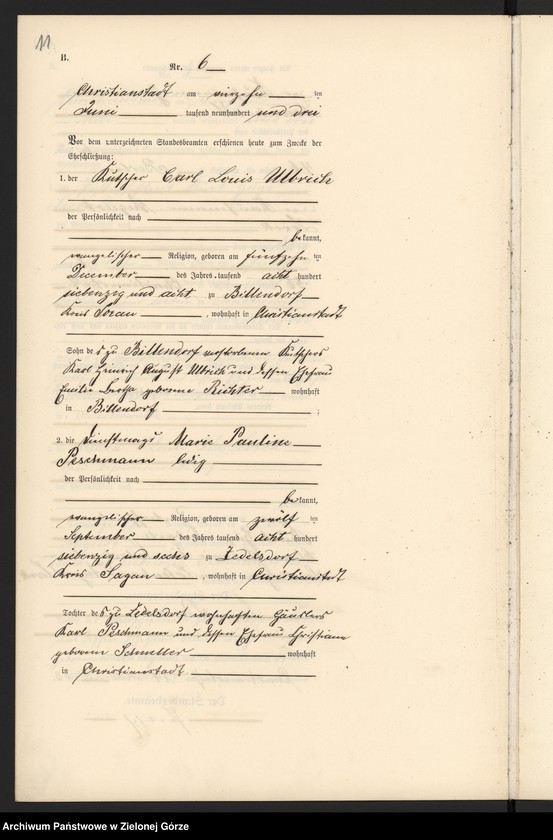 11
B.
Nr. 6
Christianstadt am vierzehn ten
Juni tausend neunhundert und drei
Vor dem unterzeichneten Standesbeamten erschienen heute zum Zwecke der
Eheschließung:
1. der Kutscher Carl Louis Ulbrich
der Persönlichkeit nach
bekannt,
evangelischer Religion, geboren am fünfzehn ten
December des Jahres tausend acht hundert
siebenzig und acht zu Billendorf
Kreis Sorau, wohnhaft in Christianstadt
Sohn des zu Billendorf verstorbenen Kutschers
Karl Heinrich August Ulbrich und dessen Ehefrau
Emilie Bertha geborene Richter wohnhaft
in Billendorf ;
2. die Dienstmagd Marie Pauline
Peschmann ledig
der Persönlichkeit nach
bekannt,
evangelischer Religion, geboren am zwölf ten
September des Jahres tausend acht hundert
siebenzig und sechs zu Zedelsdorf
Kreis Sagan, wohnhaft in Christianstadt
Tochter des zu Zedelsdorf wohnhaften Häuslers
Karl Peschmann und dessen Ehefrau Christiane
geborene wohnhaft
in Christianstadt
Archiwum Państwowe w Zielonej Górze